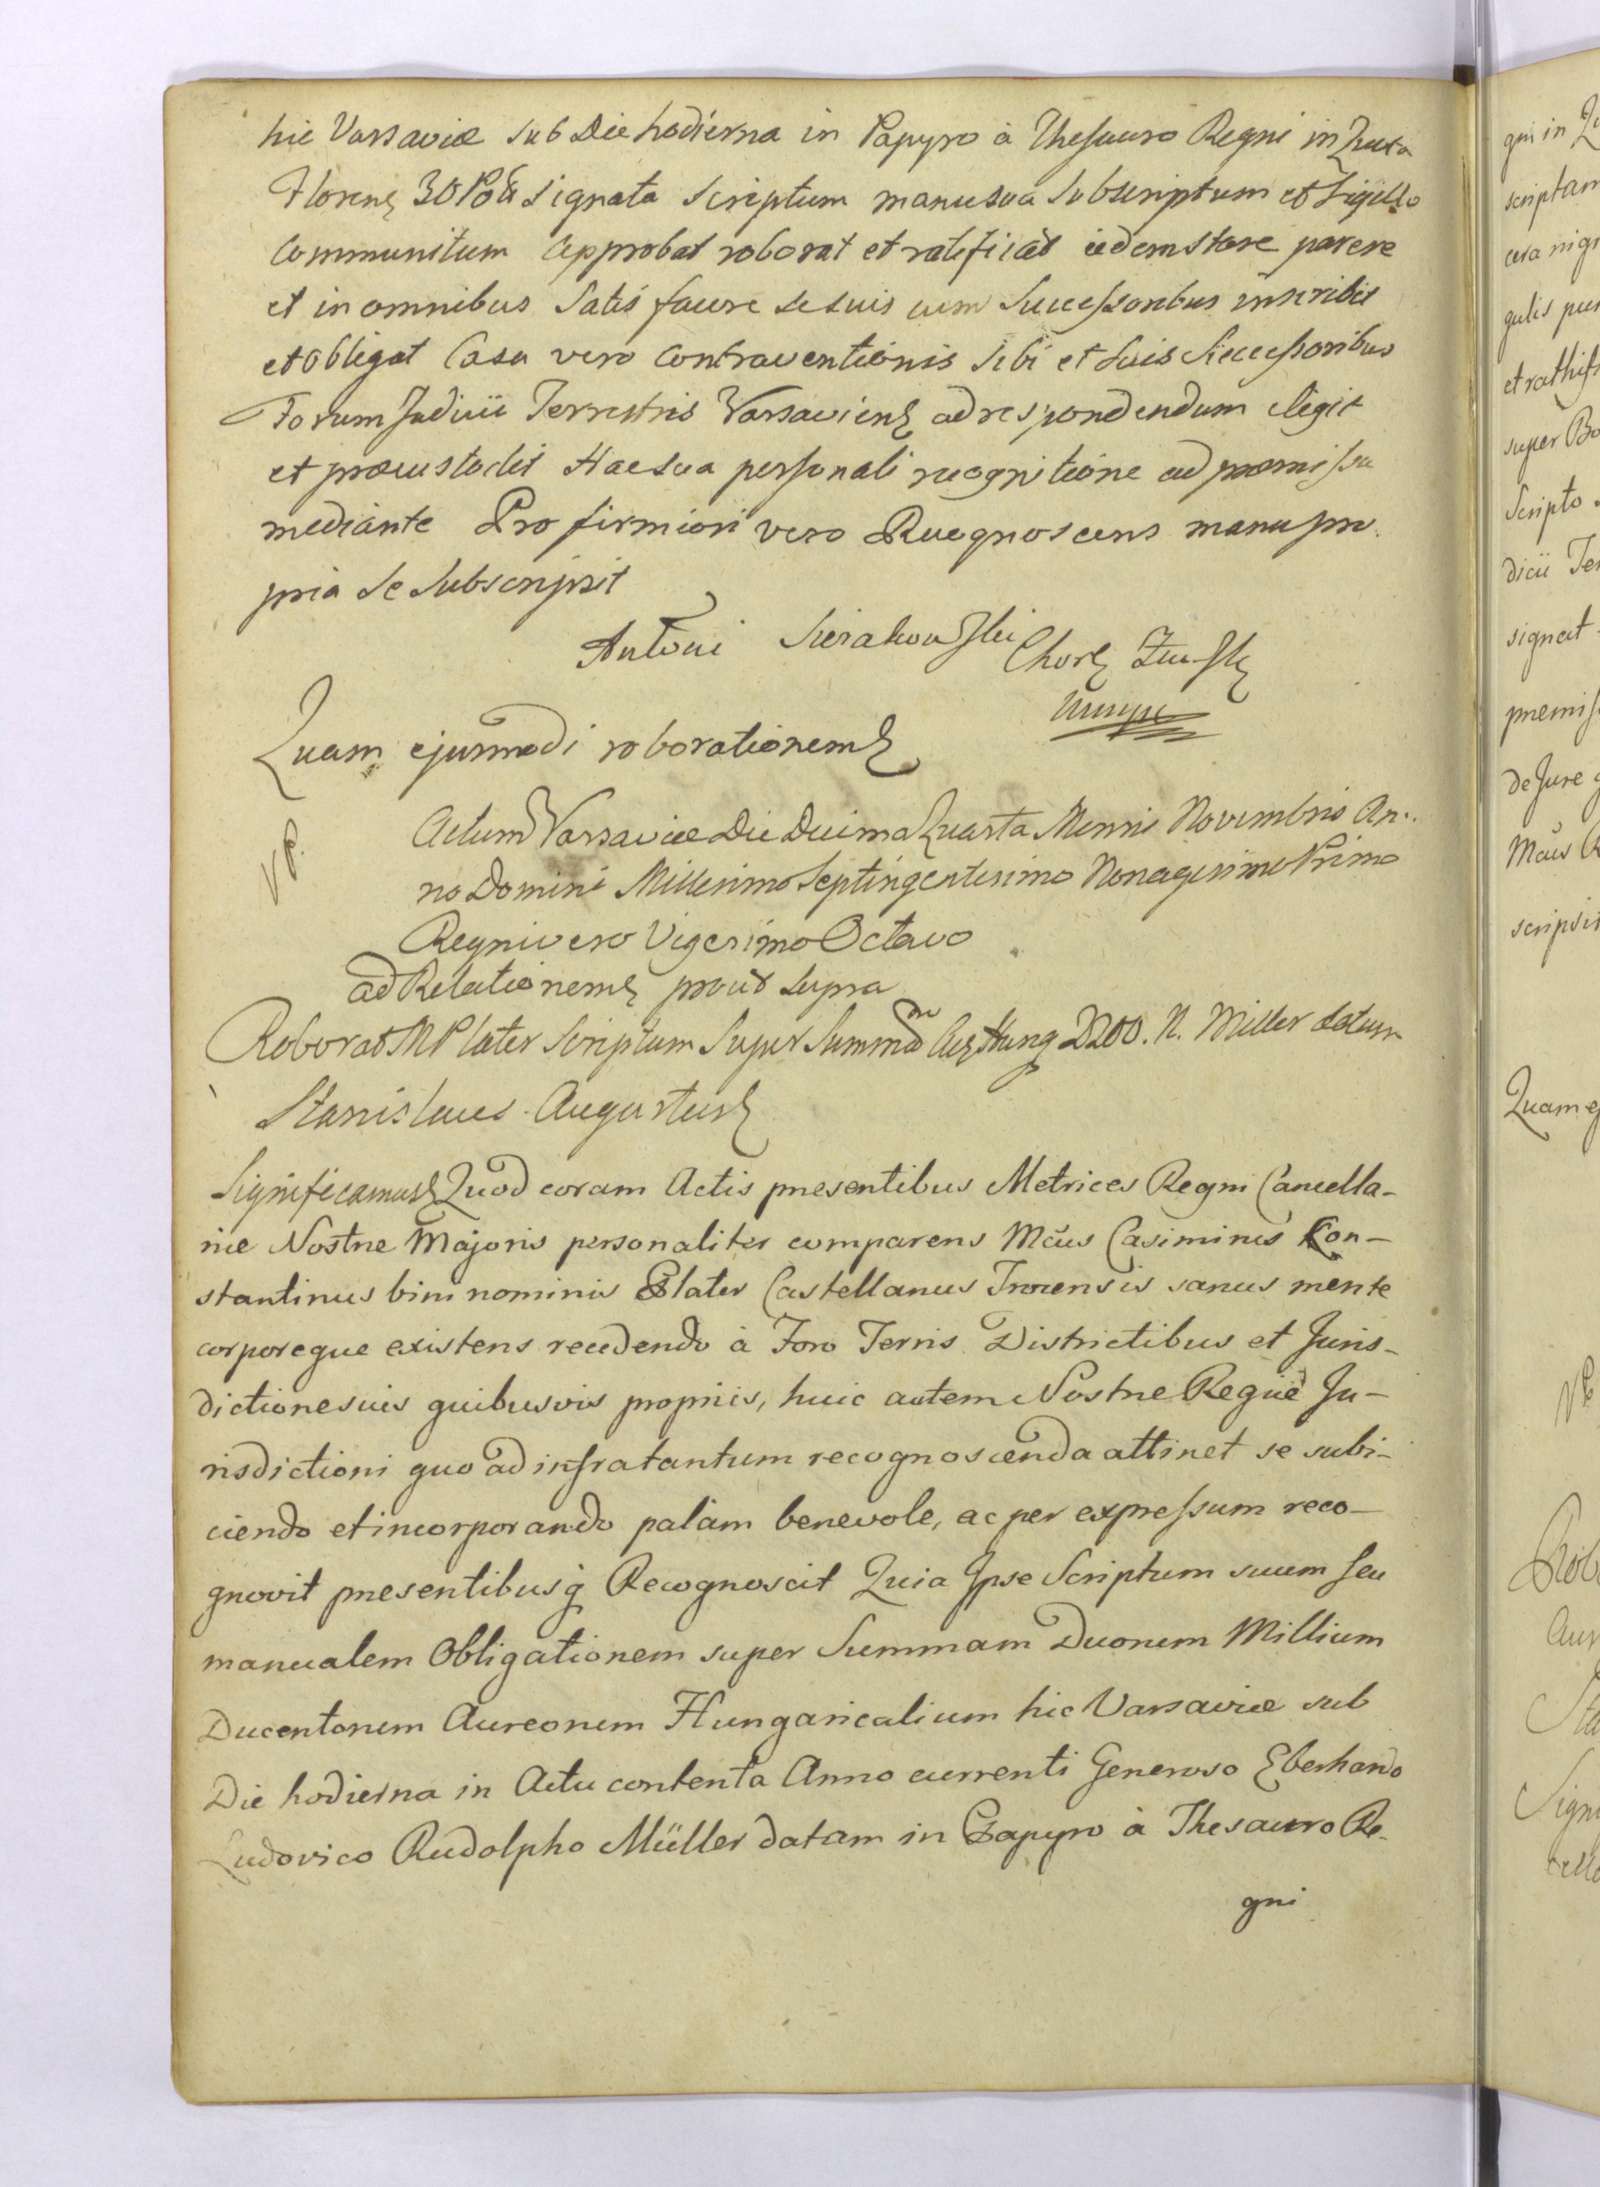 hic Varsaviæ sub Die hodierna in Papyro à Thesauro Regni in Quota
Floren 30 Pol signata Scriptum manu sua Subscriptum et Sigillo
Communitum Approbat roborat et ratificat eidem stare parere
et in omnibus Satis facere se suis cum Successoribus inscribit
et obligat Casu vero Contraventionis Sibi et Suis Successoribus
Forum Judicii Terrestris Varsaviens ad respondendum elegit
et præcustodit Hac sua personali recognitione ad præmissa
mediante Pro firmiori vero Recognoscens manu pro-
pria se Subscripsit
Antoni Sierakowski Chor
Quam ejusmodi roborationem
Actum Varsaviæ Die Decima Quarta Mensis Novembris An-
no Domini Millesimo Septingentesimo Nonagesimo Primo
Regni vero Vigesimo Octavo
VR.
ad Relationem prout supra
Roborat M Plater Scriptum Super Summam Hung 2200. N. Miller datum
Stanislaus Augustus
Significamus Quod coram Actis presentibus Metrices Regni Cancella-
rie Nostre Majoris personaliter comparens Mcus Casimirus Kon-
stantinus bini nominis Plater Castellanus Trocensis sanus mente
corporeque existens recedendo à Foro Terris Districtibus et Juris-
dictione suis quibusvis propriis, huic autem Nostre Regie Ju-
risdictioni quo ad infra tantum recognoscenda attinet se subi-
ciendo et incorporando palam benevole, ac per expressum reco-
gnovit presentibusq Recognoscit Quia Ipse Scriptum suum seu
manualem Obligationem super Summam Duorum Millium
Ducentorum Aureorum Hungaricalium hic Varsaviæ sub
Die hodierna in Actu contenta Anno currenti Generoso Eberhardo
Ludovico Rudolpho Müller datam in Papyro à Thesauro Re-
gni